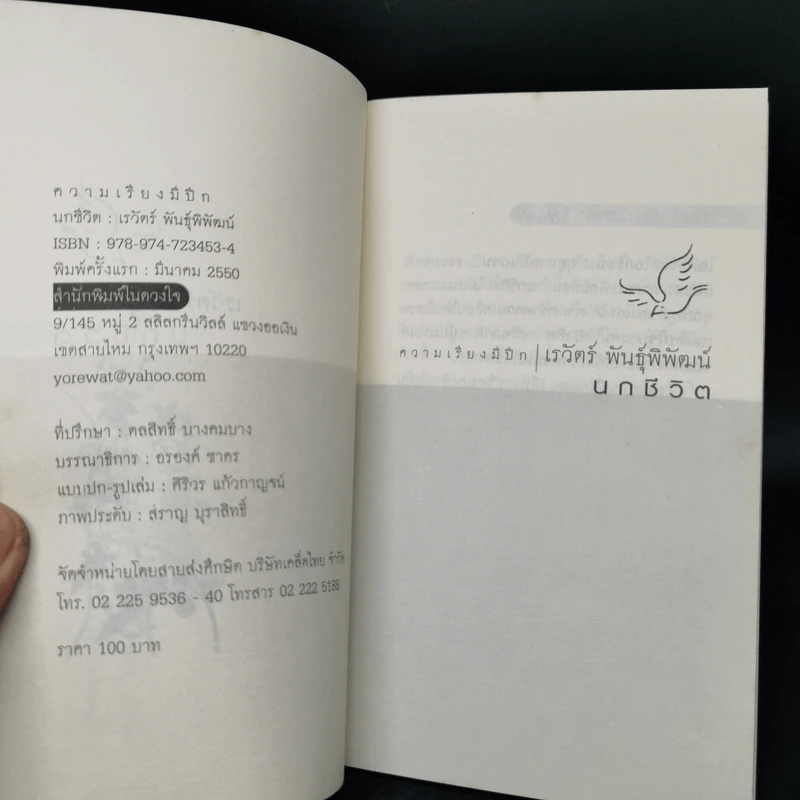 ความเรียงมีปีก
นกชีวิต : เรวัตร์ พันธุ์พิพัฒน์
ISBN : 978-974-723453-4
พิมพ์ครั้งแรก : มีนาคม 2550
สำนักพิมพ์ในดวงใจ
9/145 หมู่ 2 สลิลกรีนวิลล์ แขวงออเงิน
เขตสายไหม กรุงเทพฯ 10220
yorewat@yahoo.com
ที่ปรึกษา : ดลสิทธิ์ บางคมบาง
บรรณาธิการ : อรองค์ ชาคร
แบบปก-รูปเล่ม : ศิริวร แก้วกาญจน์
ภาพประดับ : สราญ บุราสิทธิ์
จัดจำหน่ายโดยสายส่งศึกษิต บริษัทเคล็ดไทย จำกัด
โทร. 02 225 9536 - 40 โทรสาร 02 222 5188
ราคา 100 บาท
ความเรียงมีปีก | เรวัตร์ พันธุ์พิพัฒน์
นกชีวิต